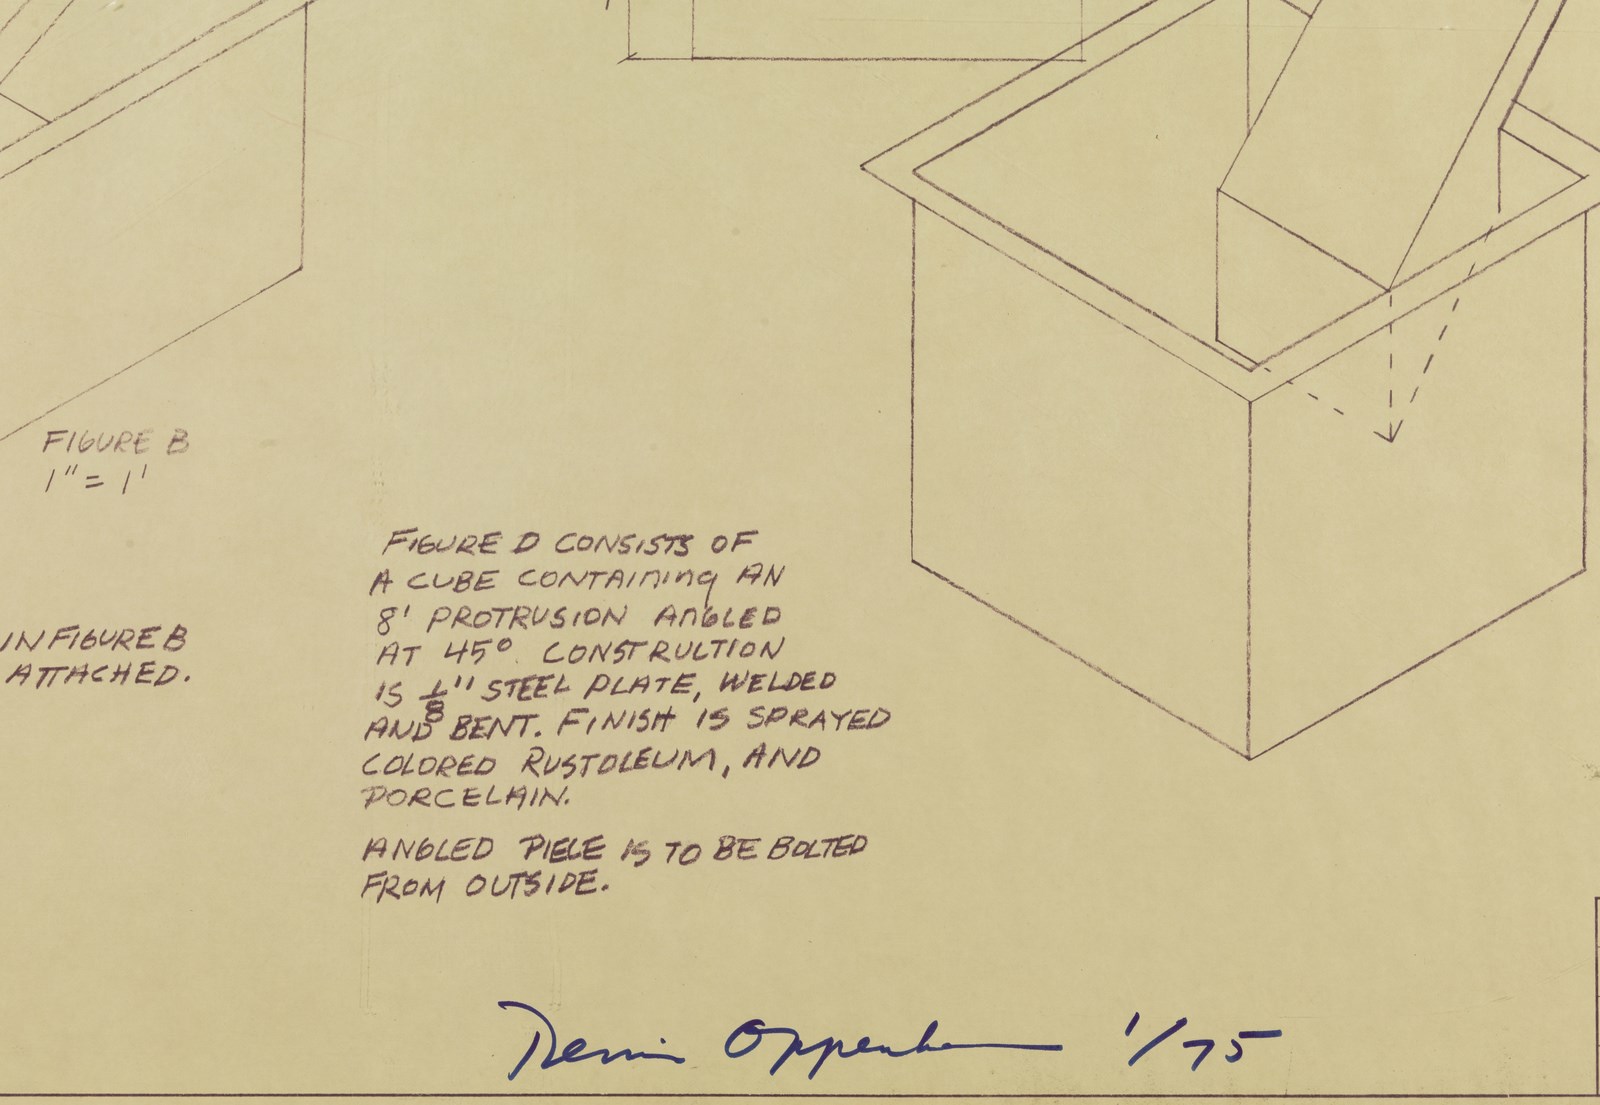 FIGURE B
1" = 1'
IN FIGURE B
ATTACHED.
FIGURE D CONSISTS OF
A CUBE CONTAINING AN
8' PROTRUSION ANGLED
AT 45° CONSTRUCTION
IS 1/8" STEEL PLATE, WELDED
AND BENT. FINISH IS SPRAYED
COLORED RUSTOLEUM, AND
PORCELAIN.
ANGLED PIECE IS TO BE BOLTED
FROM OUTSIDE.
Dennis Oppenheim 1/75